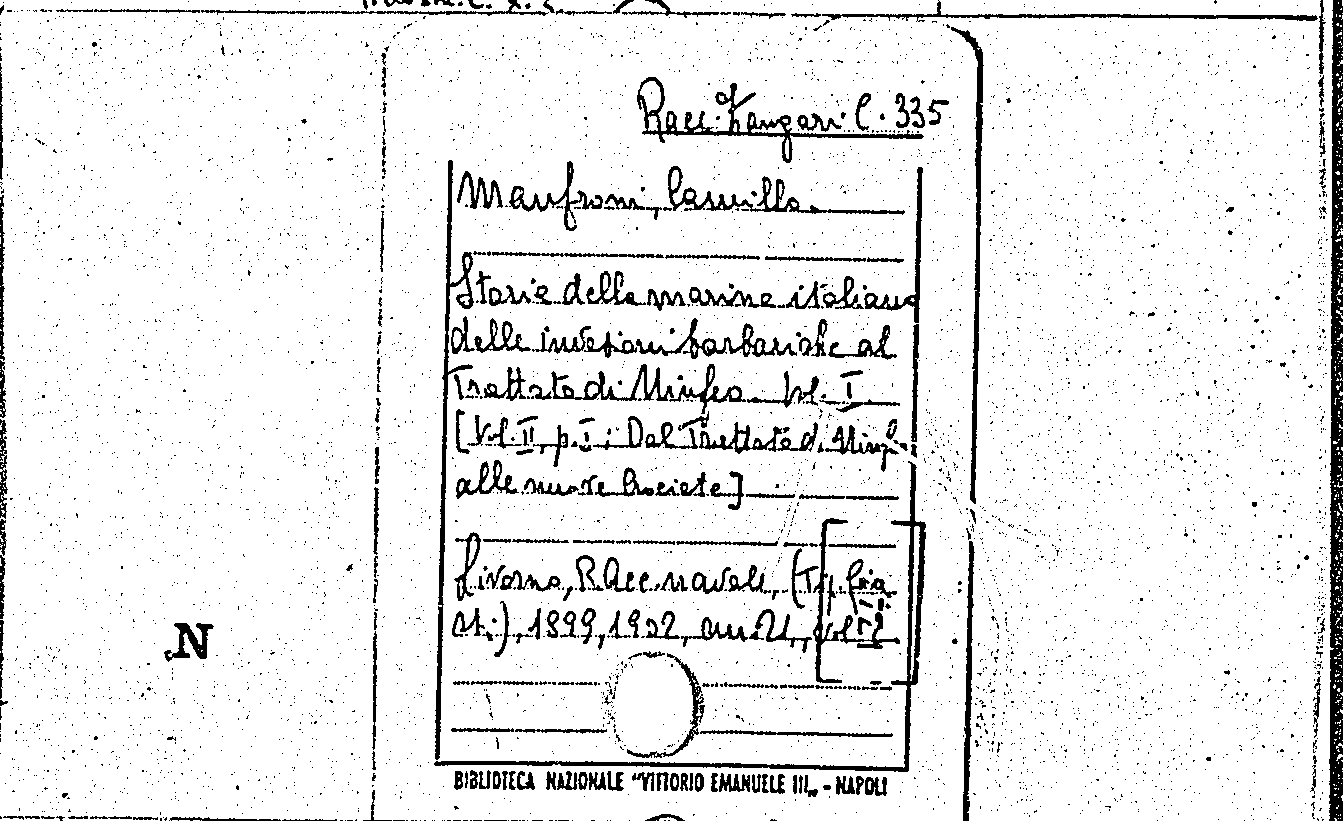 Racc. Zangari C. 335
Manfroni, Camillo.
Storia della marina italiana
dalle invasioni barbariche al
Trattato di Ninfeo. Vol. I
[Vol. II, p. I: Dal Trattato di Ninf.
alle nuove Crociate]
Livorno, R. Acc. navale, (Tip.
1899, 1902, in 21., vol. 2
N
BIBLIOTECA NAZIONALE "VITTORIO EMANUELE III„ - NAPOLI